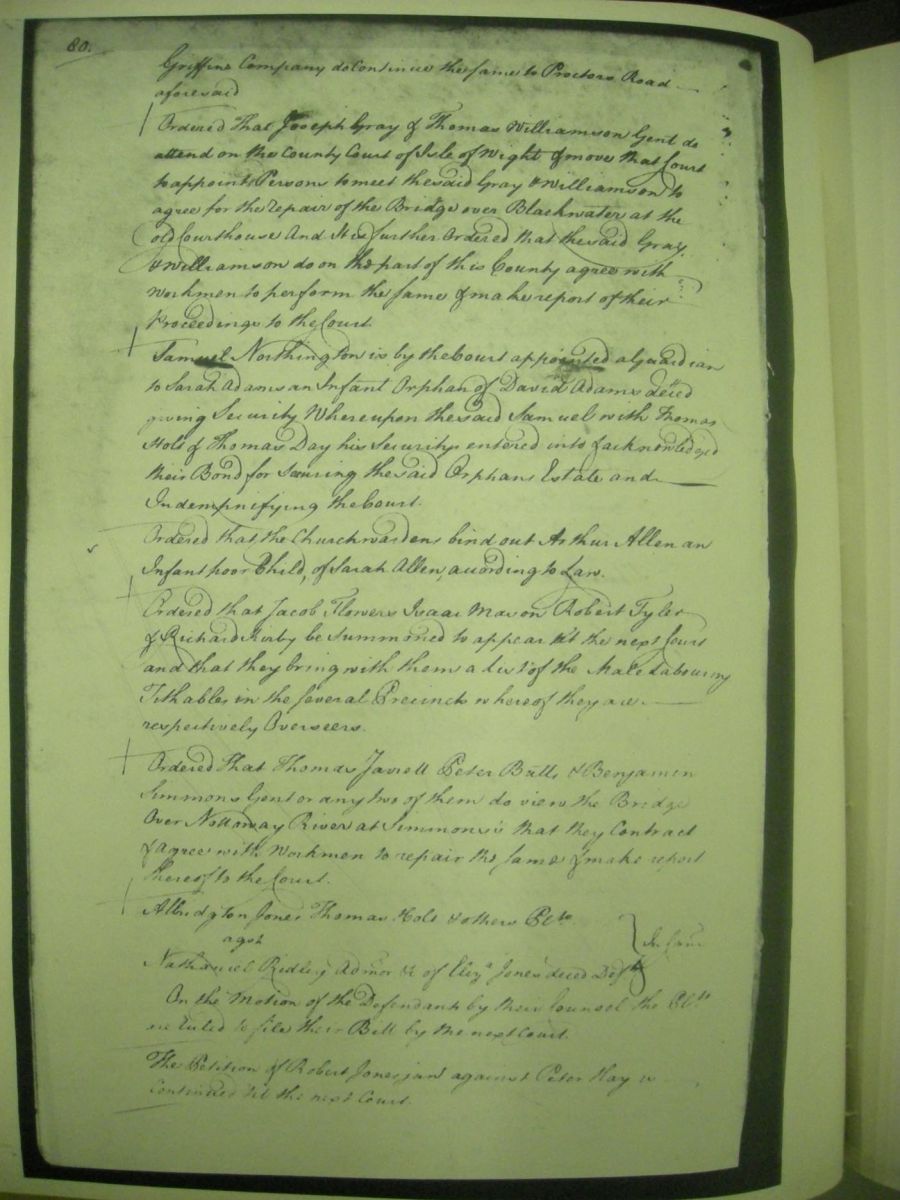 80.
Griffins Company do Continue the same to Proctors Road
aforesaid
Ordered that Joseph Gray & Thomas Williamson Gent do
attend on the County Court of Isle of Wight & move that Court
to appoint Persons to meet the said Gray & Williamson to
agree for the repair of the Bridge over Blackwater at the
old Courthouse And It is further Ordered that the said Gray
& Williamson do on the part of this County agree with
Workmen to perform the same & make report of their
Proceedings to the Court.
Samuel Northington is by the Court appointed a Guardian
to Sarah Adams an Infant Orphan of David Adams deced
giving Security Whereupon the said Samuel with Thomas
Holt & Thomas Day his Securitys entered into & acknowledged
their Bond for Securing the said Orphans Estate and
Indempnifying the Court.
Ordered that the Churchwardens bind out Arthur Allen an
Infant poor Child, of Sarah Allen, according to Law.
Ordered that Jacob Flowers Isaac Mason Robert Tyler
& Richard Kirby be Summoned to appear at the next Court
and that they bring with them a list of the Male Labouring
Tithables in the several Precincts whereof they are
respectively Overseers.
Ordered that Thomas Jarrell Peter Butts & Benjamin
Simmons Gent or any two of them do view the Bridge
Over Nottoway River at Simmons's that they Contract
& agree with Workmen to repair the same & make report
thereof to the Court.
Albridgton Jones Thomas Holt & others Plts
agst
Nathaniel Ridley Admor &c of Eliza Jones deced Deft
In
On the Motion of the Defendant by their Counsel the Plts
are Ruled to file their Bill by the next Court.
The Petition of Robert Jones junr against Peter Hay is
Continued til the next Court.